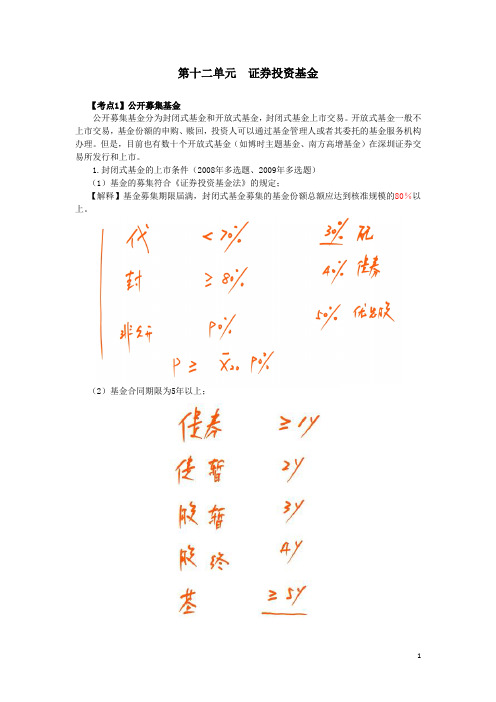 第十二单元 证券投资基金
【考点1】公开募集基金
公开募集基金分为封闭式基金和开放式基金,封闭式基金上市交易。开放式基金一般不
上市交易,基金份额的申购、赎回,投资人可以通过基金管理人或者其委托的基金服务机构
办理。但是,目前也有数十个开放式基金(如博时主题基金、南方高增基金)在深圳证券交
易所发行和上市。
1.封闭式基金的上市条件(2008年多选题、2009年多选题)
(1)基金的募集符合《证券投资基金法》的规定;
【解释】基金募集期限届满,封闭式基金募集的基金份额总额应达到核准规模的80%以
上。
代 <70% 30% 配
封 ≥80% 40% 债券
非公开 P0% 50% 优先股
P≥ x̄20 P0%
(2)基金合同期限为5年以上;
债券 ≥1y
债暂 2y
股暂 3y
股终 4y
基 ≥5y
1